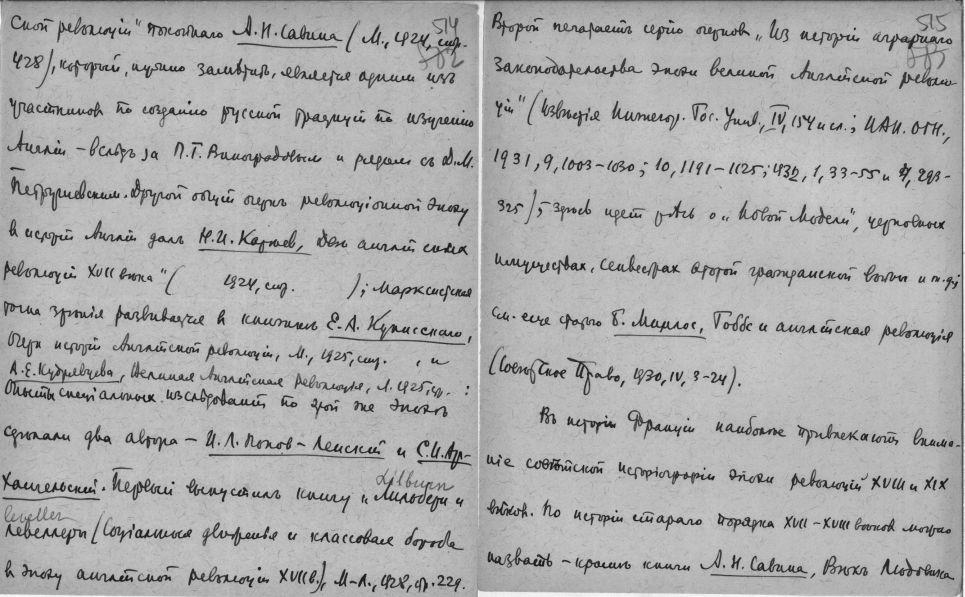 514
ской революціи" покойнаго А.Н. Савина (М., 1924, стр.
428), который, нужно замѣтить, является однимъ изъ
участниковъ по созданію русской традиціи по изученію
Англіи – вслѣдъ за П.Г. Виноградовым и рядом съ Д.М.
Петрушевским. Другой общій очеркъ революціонной эпохи
въ исторіи Англіи далъ Н.И. Карѣев, Двѣ англійскихъ
революціи XVII вѣка" ( 1924, стр. ); Марксистская
точка зрѣнія развивается в книжкахъ Е.А.
Очерки исторіи Англійской революціи, М., 1925, стр. , и
А.Е. Кудрявцева, Великая Англійская революція, Л. 1925, стр. :
Опыты спеціальных изслѣдованій по этой же эпохѣ
сдѣлали два автора – И.Л. Попов-Ленскій и С.И. Ар-
хангельскій. Первый выпустилъ книгу „Лильберн и
Lilburn
leveller
Левеллеры (Соціальныя движенія и классовая борьба
в эпоху англійской революціи XVII в.), М-Л., 1928, стр. 229.
515
Второй печатаетъ серію очерков „Из исторіи аграрнаго
законодательства эпохи великой Англійской револю-
ціи" (Извѣстія Нижегор. Гос. Унив., IV, 154 и сл.; ИАН. ОГН.,
1931, 9, 1003-1030; 10, 1191-1125; 1932, 1, 33-55 и 4, 293-
325); Здѣсь идет рѣчь о „Новой Модели", церковных
имуществах, секвестрах второй гражданской войны и т.д.;
см. еще статью Б. Гоббс и английская революція
(Советское Право, 1930, IV, 3-24).
Въ исторіи Франціи наиболѣе привлекают внима-
ніе совѣтской исторіографіи эпохи революцій XVIII и XIX
вѣков. По исторіи стараго порядка XVII-XVIII вѣков можно
назвать – кромѣ книги А.Н. Савина, Вѣкъ Людовика